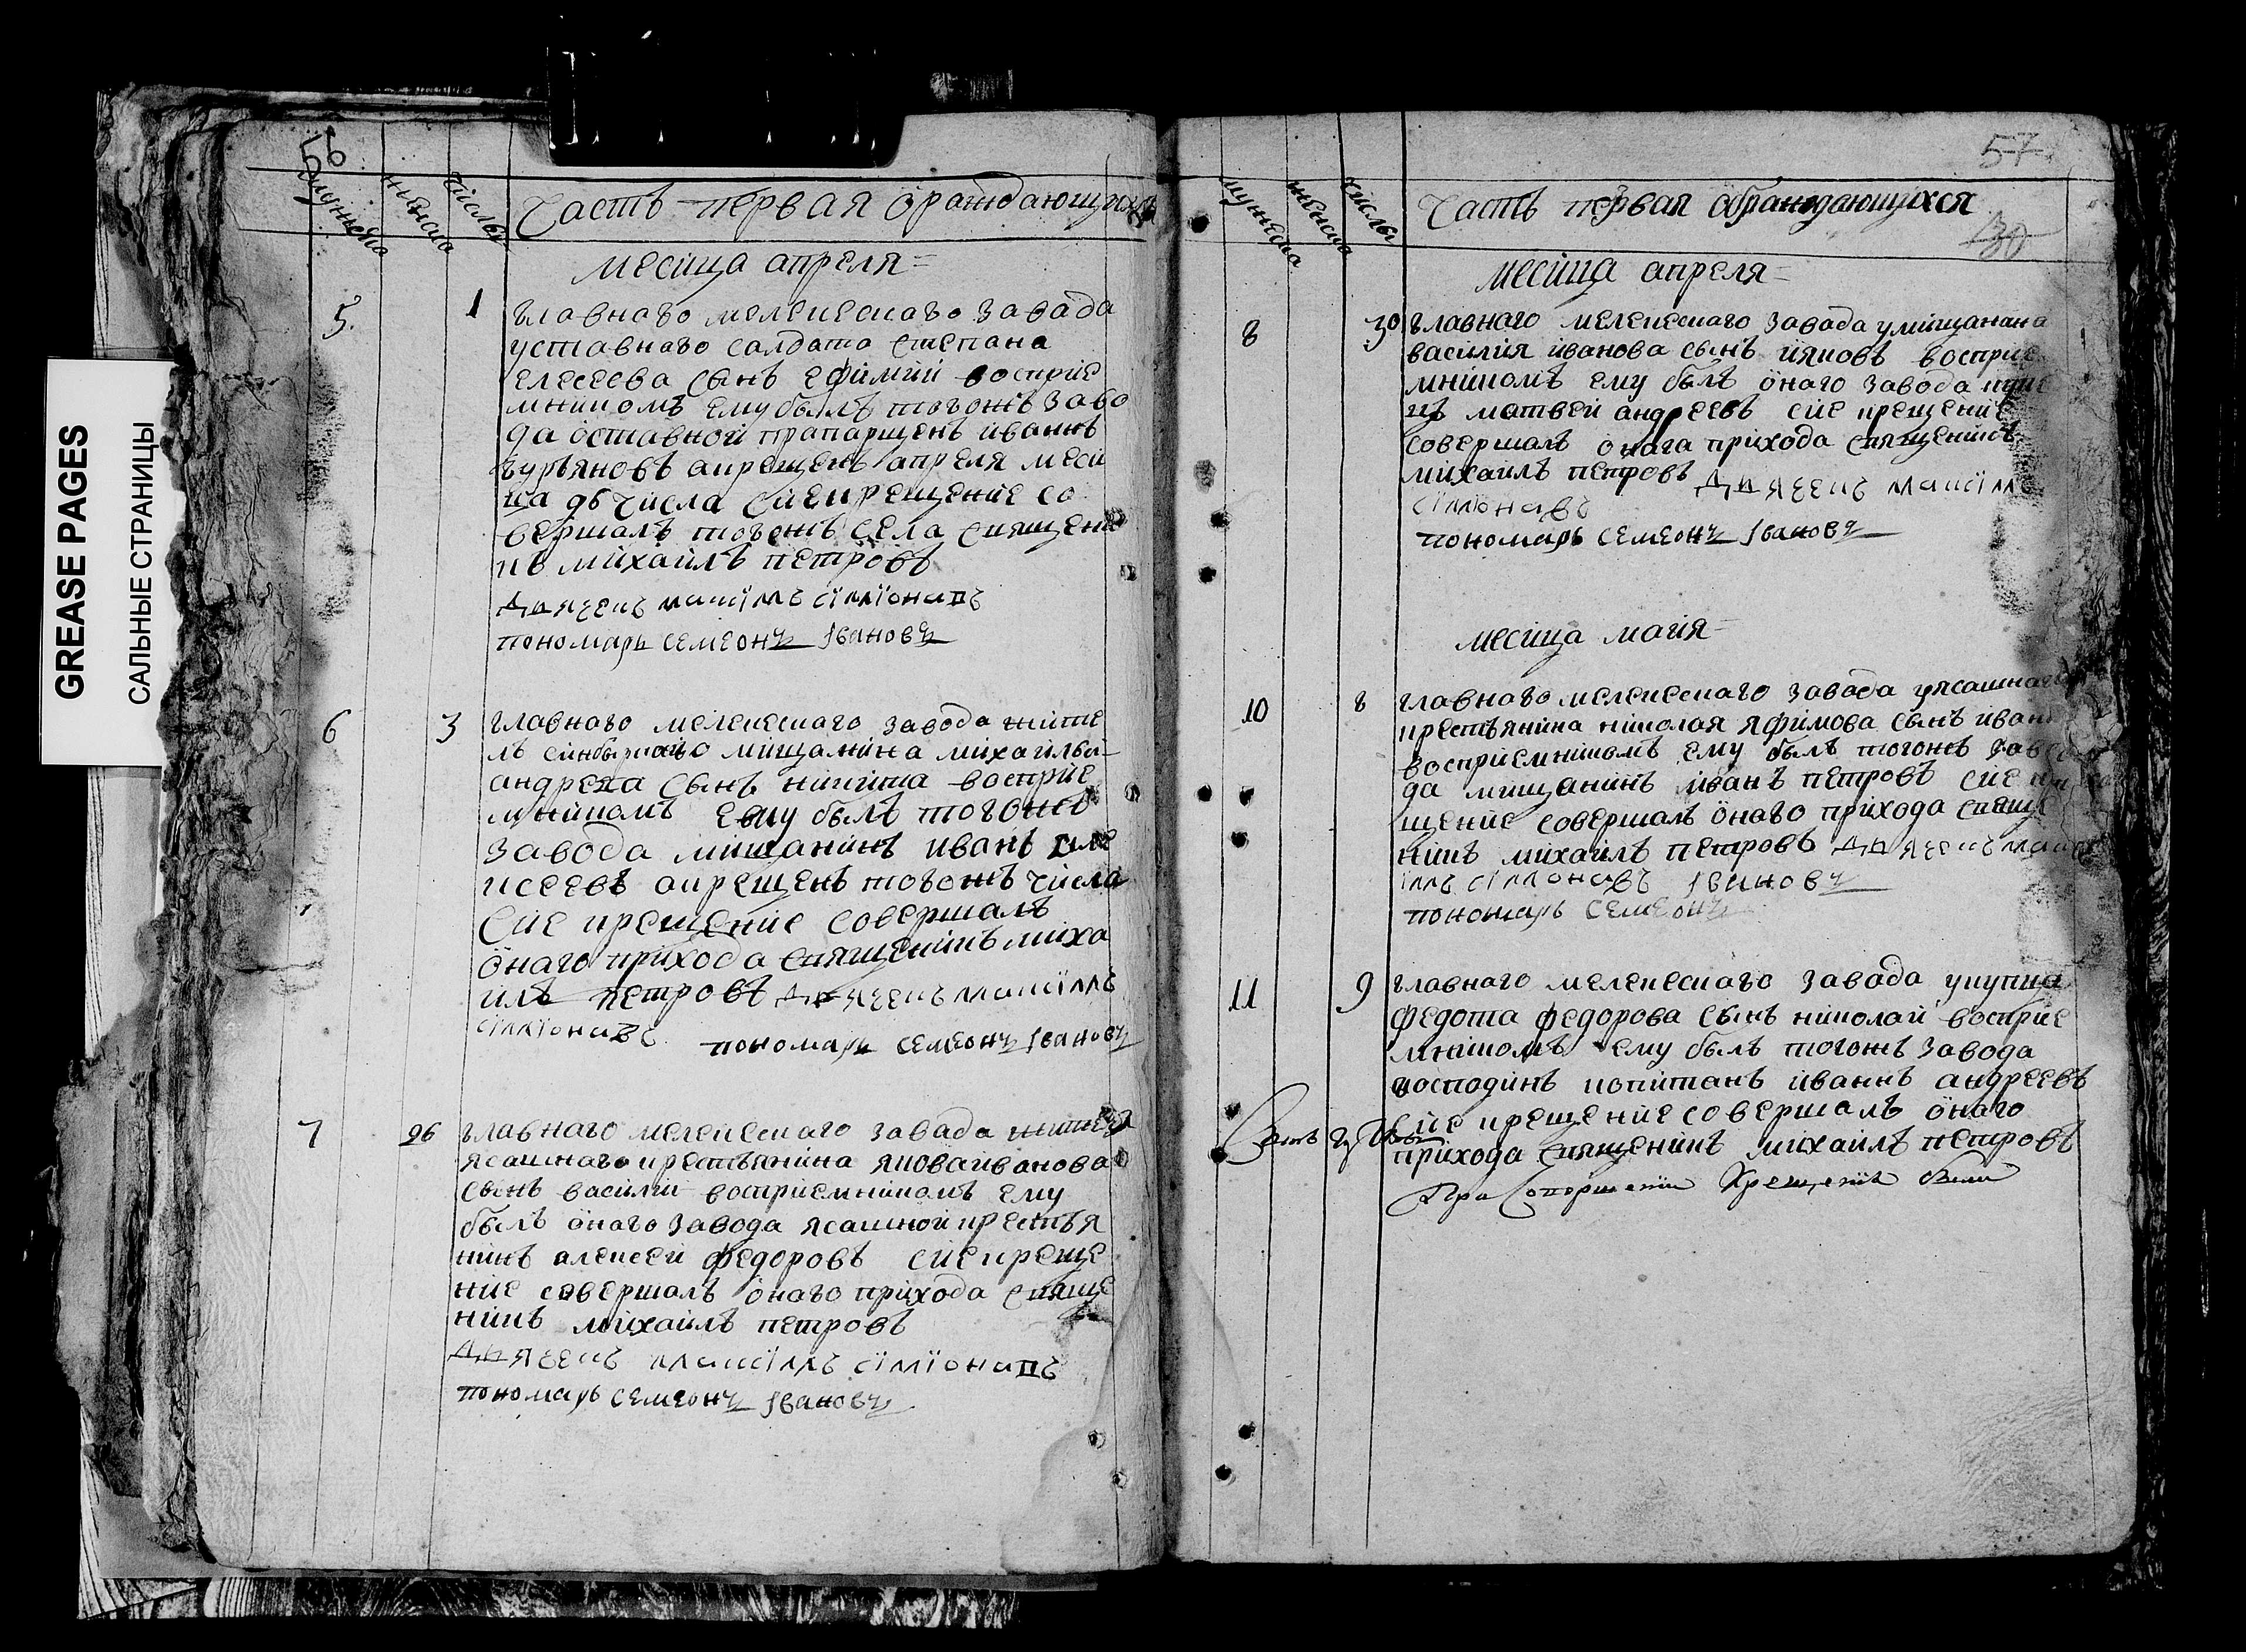 GREASE PAGES
САЛЬНЫЕ СТРАНИЦЫ
56
мужеска
женска
числы
Часть первая ораждающихся
месица апреля =
5.
1
главного мелекескаго завада
уставнаго салдата степана
елесеева сынъ ефимий восприе
мникомъ ему былъ тогожъ заво
да оставной прапарщекъ иванъ
гурьяновъ акрещенъ апреля меси
ца 96 числа сиекрещение со
вершалъ тогожъ села священи
къ михаилъ петровъ
дияченъ максiмъ сiмiонавъ
пономарь семеонъ Iвановъ
6
3
главнаго мелекескаго завода жите
ль синбирскаго мищанина михаилы
андреха сынъ никита восприе
мникомъ ему былъ тогожъ
завода мищанинъ иванъ еле
исеевъ акрещенъ тогожъ числа
сие крещение совершалъ
онаго прихода священикъ миха
илъ петровъ дияченъ максiмъ
сiмiонавъ
пономарь семеонъ Iвановъ
7
96
главнаго мелекескаго завада жителя
ясашнаго крестьянина якова иванова
сынъ василий восприемникомъ ему
былъ онаго завода ясашной крестья
нинъ алексей федоровъ сие креще
ние совершалъ онаго прихода свяще
никъ михаилъ петровъ
дияченъ максiмъ сiмiонавъ
пономарь семеонъ Iвановъ
57.
мужеска
женска
числы
Часть первая абраждающихся
130
месица апреля =
8
30
главнаго мелекескаго завада умищанина
василия иванова сынъ ияковъ восприе
мникомъ ему былъ онаго завода купе
цъ матвей андреевъ сие крещение
совершалъ онага прихода священикъ
михаилъ петровъ дияченъ максiмъ
сiмiонавъ
пономарь семеонъ Iвановъ
месица маия =
10
8
главнаго мелекескаго завада уясашнаго
крестьянина николая яфимова сынъ иванъ
восприемникомъ ему былъ тогожъ заво
да мищанинъ иванъ петровъ сие кре
щение совершалъ онаго прихода свяще
никъ михаилъ петровъ дияченъ макс
iмъ сiмiонавъ Iвановъ
пономарь семеонъ
11
9
главнаго мелекескаго завада укупца
федота федорова сынъ николай восприе
мникомъ ему былъ тогожъ завода
господинъ копитанъ иваннъ андреевъ
сие крещение совершалъ онаго
прихода священикъ михаилъ петровъ
При Сопоршении Крещения были